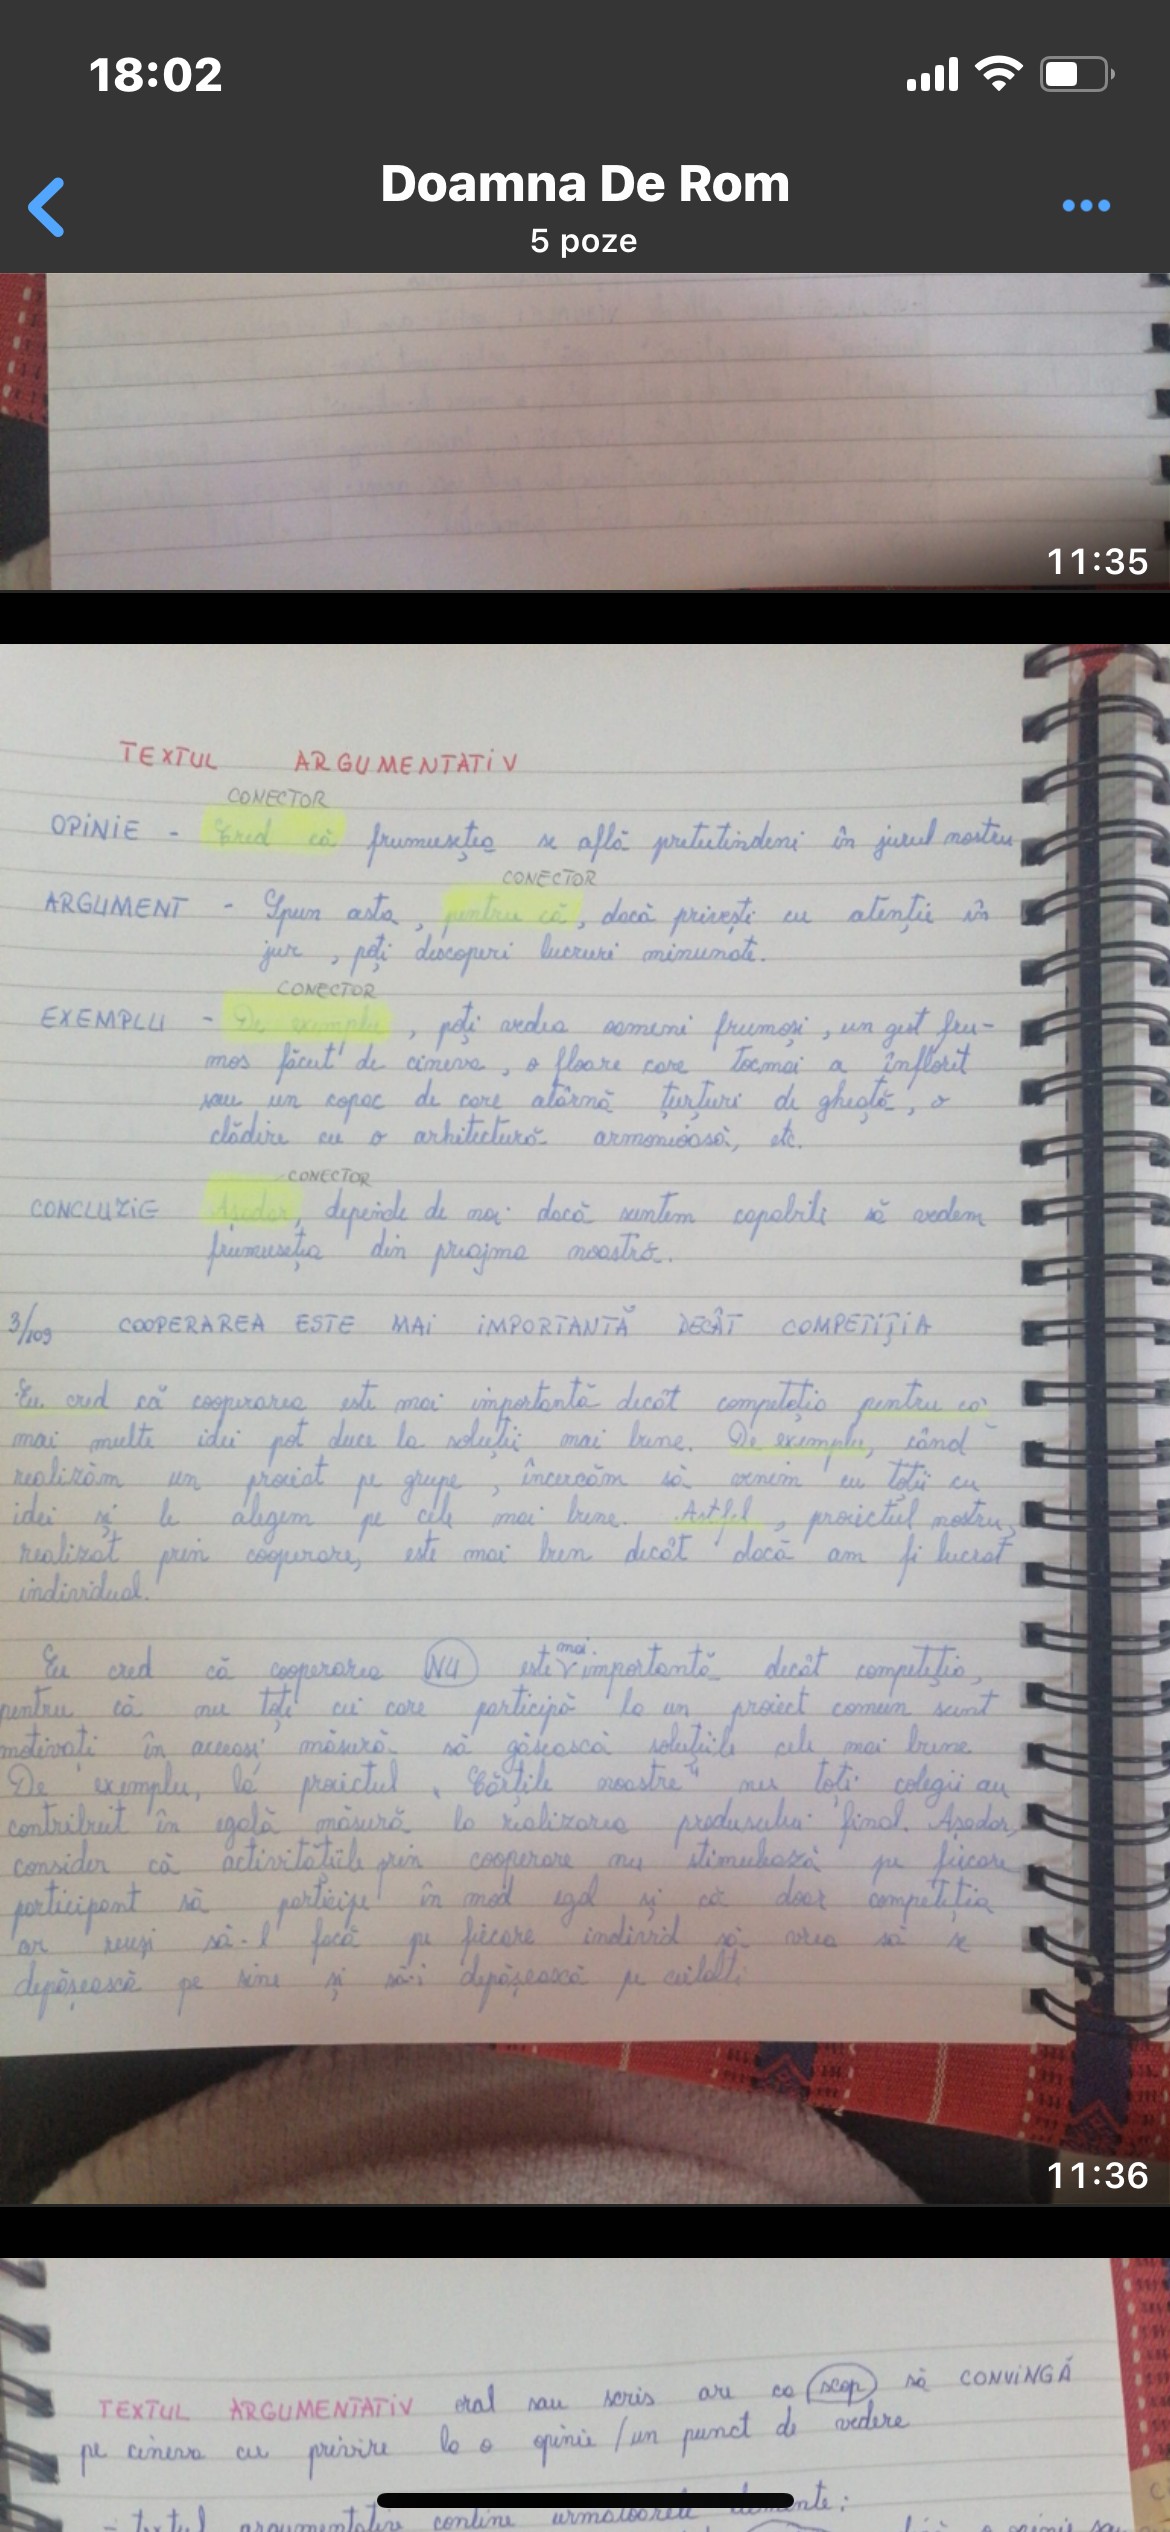 18:02
Doamna De Rom
5 poze
11:35
TEXTUL ARGUMENTATIV
CONECTOR
OPINIE - Cred că frumusețea se află pretutindeni în jurul nostru
CONECTOR
ARGUMENT - Spun asta, pentru că, dacă privești cu atenție în
jur, poți descoperi lucruri minunate.
CONECTOR
EXEMPLU - De exemplu, poți vedea oameni frumoși, un gest fru-
mos făcut de cineva, o floare care tocmai a înflorit
sau un copac de care atârnă țurțuri de gheață, o
clădire cu o arhitectură armonioasă, etc.
CONECTOR
CONCLUZIE Așadar, depinde de noi dacă suntem capabili să vedem
frumusețea din preajma noastră.
3/109 COOPERAREA ESTE MAI IMPORTANTĂ DECÂT COMPETIȚIA
Eu cred că cooperarea este mai importantă decât competiția pentru că
mai multe idei pot duce la soluții mai bune. De exemplu, când
realizăm un proiect pe grupe, încercăm să venim cu toții cu
idei și le alegem pe cele mai bune. Astfel, proiectul nostru,
realizat prin cooperare, este mai bun decât dacă am fi lucrat
individual.
Eu cred că cooperarea NU este mai importantă decât competiția,
pentru că nu toți cei care participă la un proiect comun sunt
motivați în aceeași măsură să găsească soluțiile cele mai bune
De exemplu, la proiectul "Cărțile noastre" nu toți colegii au
contribuit în egală măsură la realizarea produsului final. Așadar,
consider că activitățile prin cooperare nu stimulează pe fiecare
participant să participe în mod egal și că doar competiția
ar reuși să-l facă pe fiecare individ să vrea să se
depășească pe sine și să-i depășească pe ceilalți
11:36
TEXTUL ARGUMENTATIV oral sau scris are ca scop să CONVINGĂ
pe cineva cu privire la o opinie / un punct de vedere
- textul argumentativ conține următoarele elemente: